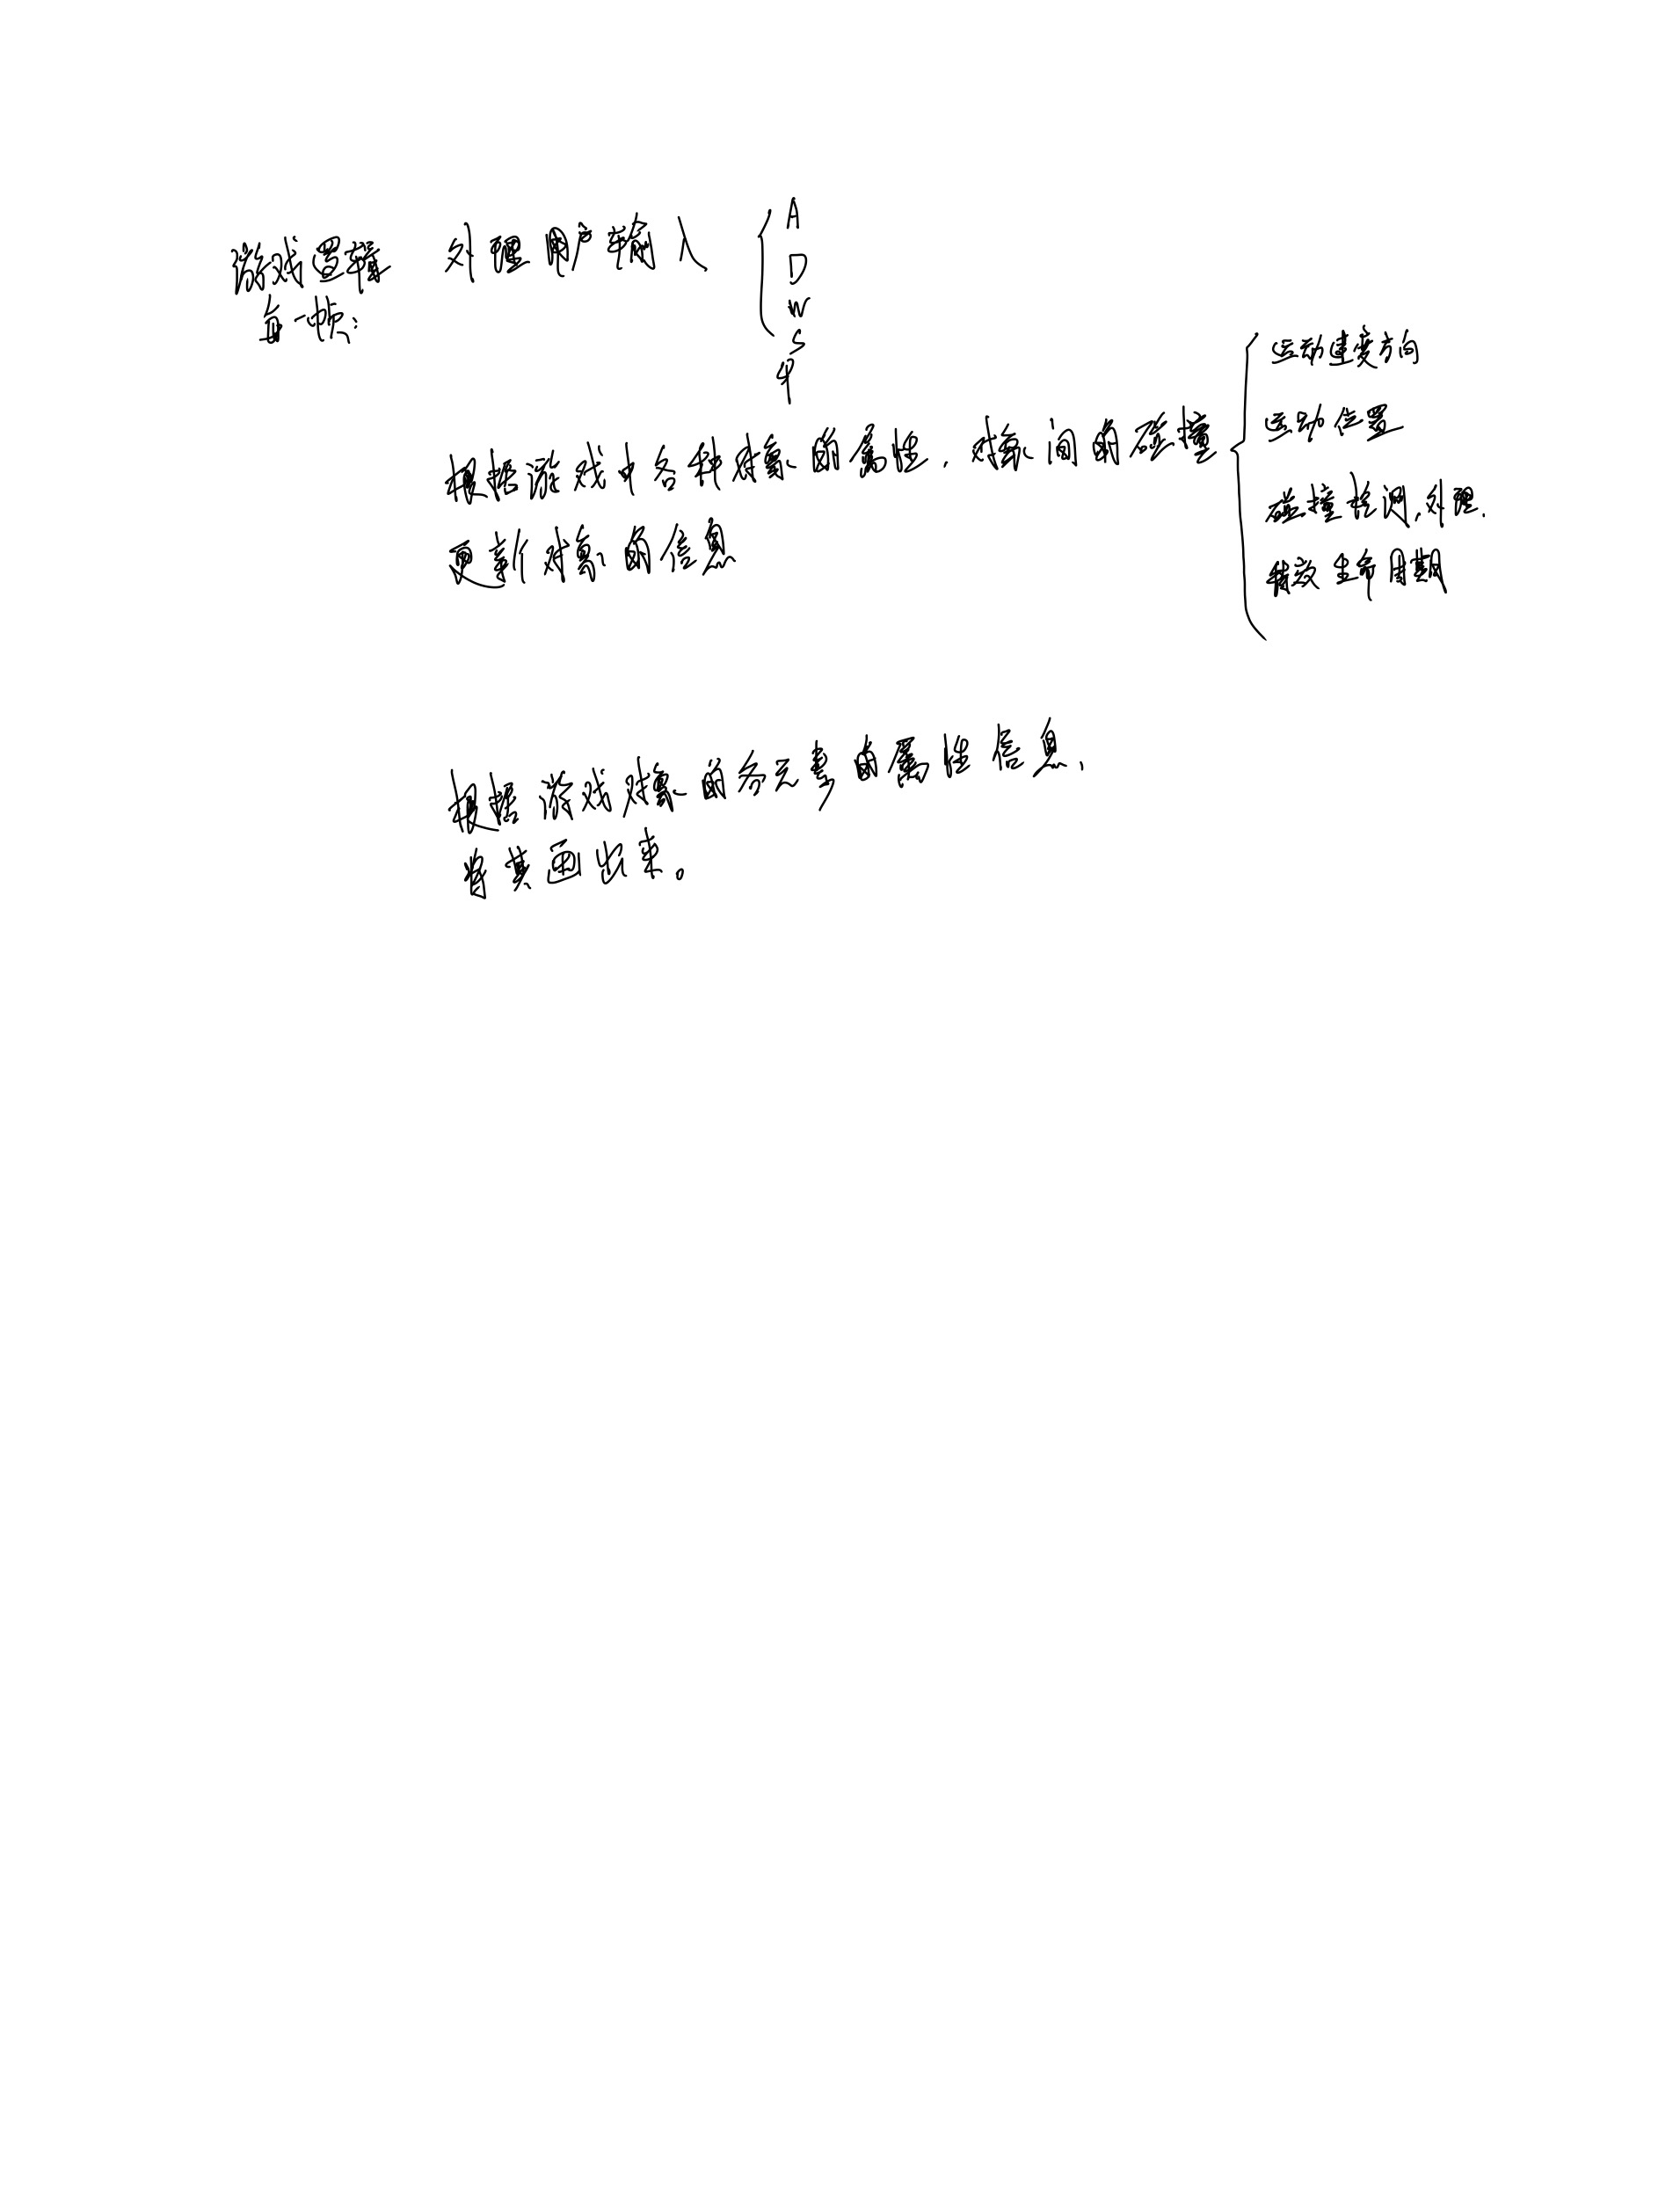 游戏逻辑
每一帧:
处理用户输入
A
D
W
S
根据游戏中各种对象的属性,对象间的碰撞
更新对象的信息
运动速度方向
运动位置
碰撞检测,处理.
特效生命周期
根据游戏对象的各元素的属性信息,
将其画出来。